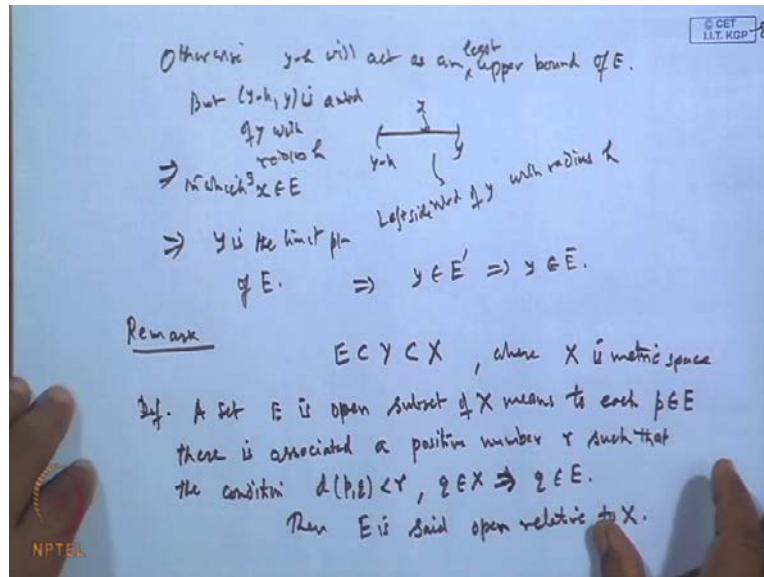 © CET
I.I.T. KGP
Otherwise y-h will act as an least upper bound of E.
But (y-h, y) is a nbd
of y with
radius h
x
y-h y
⇒ in which ∃ x ∈ E
Left side nbd of y with radius h
⇒ y is the limit pt
of E. ⇒ y ∈ E' ⇒ y ∈ Ē.
Remark
E ⊂ Y ⊂ X , where X is metric space
Def. A set E is open subset of X means to each p ∈ E
there is associated a positive number r such that
the condition d(p,q) < r, q ∈ X ⇒ q ∈ E.
Then E is said open relative to X.
NPTEL